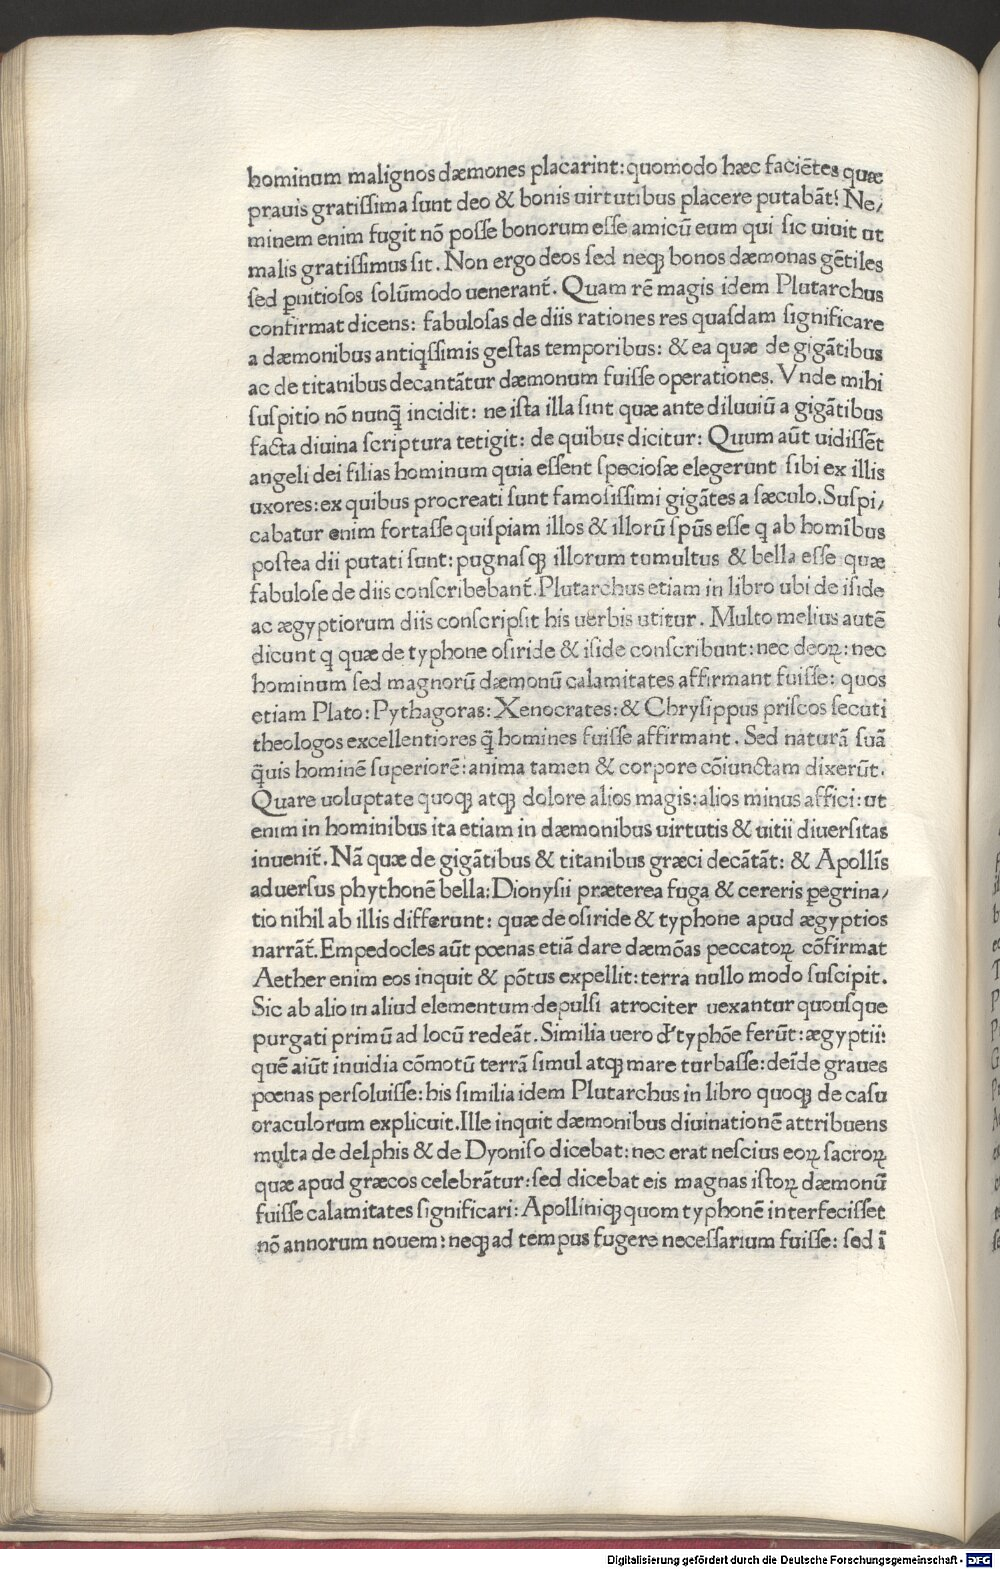 hominum malignos dæmones placarint: quomodo hæc faciẽtes quæ
prauis gratissima sunt deo & bonis uirtutibus placere putabãt? Ne/
minem enim fugit nõ posse bonorum esse amicũ eum qui sic uiuit ut
malis gratissimus sit. Non ergo deos sed neqꝫ bonos dæmonas gẽtiles
sed ꝑnitiosos solũmodo uenerant̃. Quam rẽ magis idem Plutarchus
confirmat dicens: fabulosas de diis rationes res quasdam significare
a dæmonibus antiq̃ssimis gestas temporibus: & ea quæ de gigãtibus
ac de titanibus decantãtur dæmonum fuisse operationes. Vnde mihi
suspitio nõ nunq̃ incidit: ne ista illa sint quæ ante diluuiũ a gigãtibus
facta diuina scriptura tetigit: de quibus dicitur: Quum aũt uidissẽt
angeli dei filias hominum quia essent speciosæ elegerunt sibi ex illis
uxores: ex quibus procreati sunt famosissimi gigãtes a sæculo. Suspi/
cabatur enim fortasse quispiam illos & illorũ sp̃us esse q ab homĩbus
postea dii putati sunt: pugnasqꝫ illorum tumultus & bella esse quæ
fabulose de diis conscribebant̃. Plutarchus etiam in libro ubi de iside
ac ægyptiorum diis conscripsit his uerbis utitur. Multo melius autẽ
dicunt q quæ de typhone osiride & iside conscribunt: nec deoꝝ: nec
hominum sed magnorũ dæmonũ calamitates affirmant fuisse: quos
etiam Plato: Pythagoras: Xenocrates: & Chrysippus priscos secuti
theologos excellentiores q̃ homines fuisse affirmant. Sed naturã suã
q̃uis hominẽ superiorẽ: anima tamen & corpore cõiunctam dixerũt.
Quare uoluptate quoqꝫ atqꝫ dolore alios magis: alios minus affici: ut
enim in hominibus ita etiam in dæmonibus uirtutis & uitii diuersitas
inuenit̃. Nã quæ de gigãtibus & titanibus græci decãtãt: & Apollĩs
aduersus phythonẽ bella: Dionysii præterea fuga & cereris ꝑegrina/
tio nihil ab illis differunt: quæ de osiride & typhone apud ægyptios
narrãt̃. Empedocles aũt pœnas etiã dare dæmõas peccatoꝝ cõfirmat
Aether enim eos inquit & põtus expellit: terra nullo modo suscipit.
Sic ab alio in aliud elementum depulsi atrociter uexantur quousque
purgati primũ ad locũ redeãt. Similia uero d̃ typhõe ferũt: ægyptii:
quẽ aiũt inuidia cõmotũ terrã simul atqꝫ mare turbasse: deĩde graues
pœnas persoluisse: his similia idem Plutarchus in libro quoqꝫ de casu
oraculorum explicuit. Ille inquit dæmonibus diuinationẽ attribuens
multa de delphis & de Dyoniso dicebat: nec erat nescius eoꝝ sacroꝝ
quæ apud græcos celebrãtur: sed dicebat eis magnas istoꝝ dæmonũ
fuisse calamitates significari: Apolliniqꝫ quom typhonẽ interfecisset
nõ annorum nouem: neqꝫ ad tempus fugere necessarium fuisse: sed ĩ
Digitalisierung gefördert durch die Deutsche Forschungsgemeinschaft - DFG